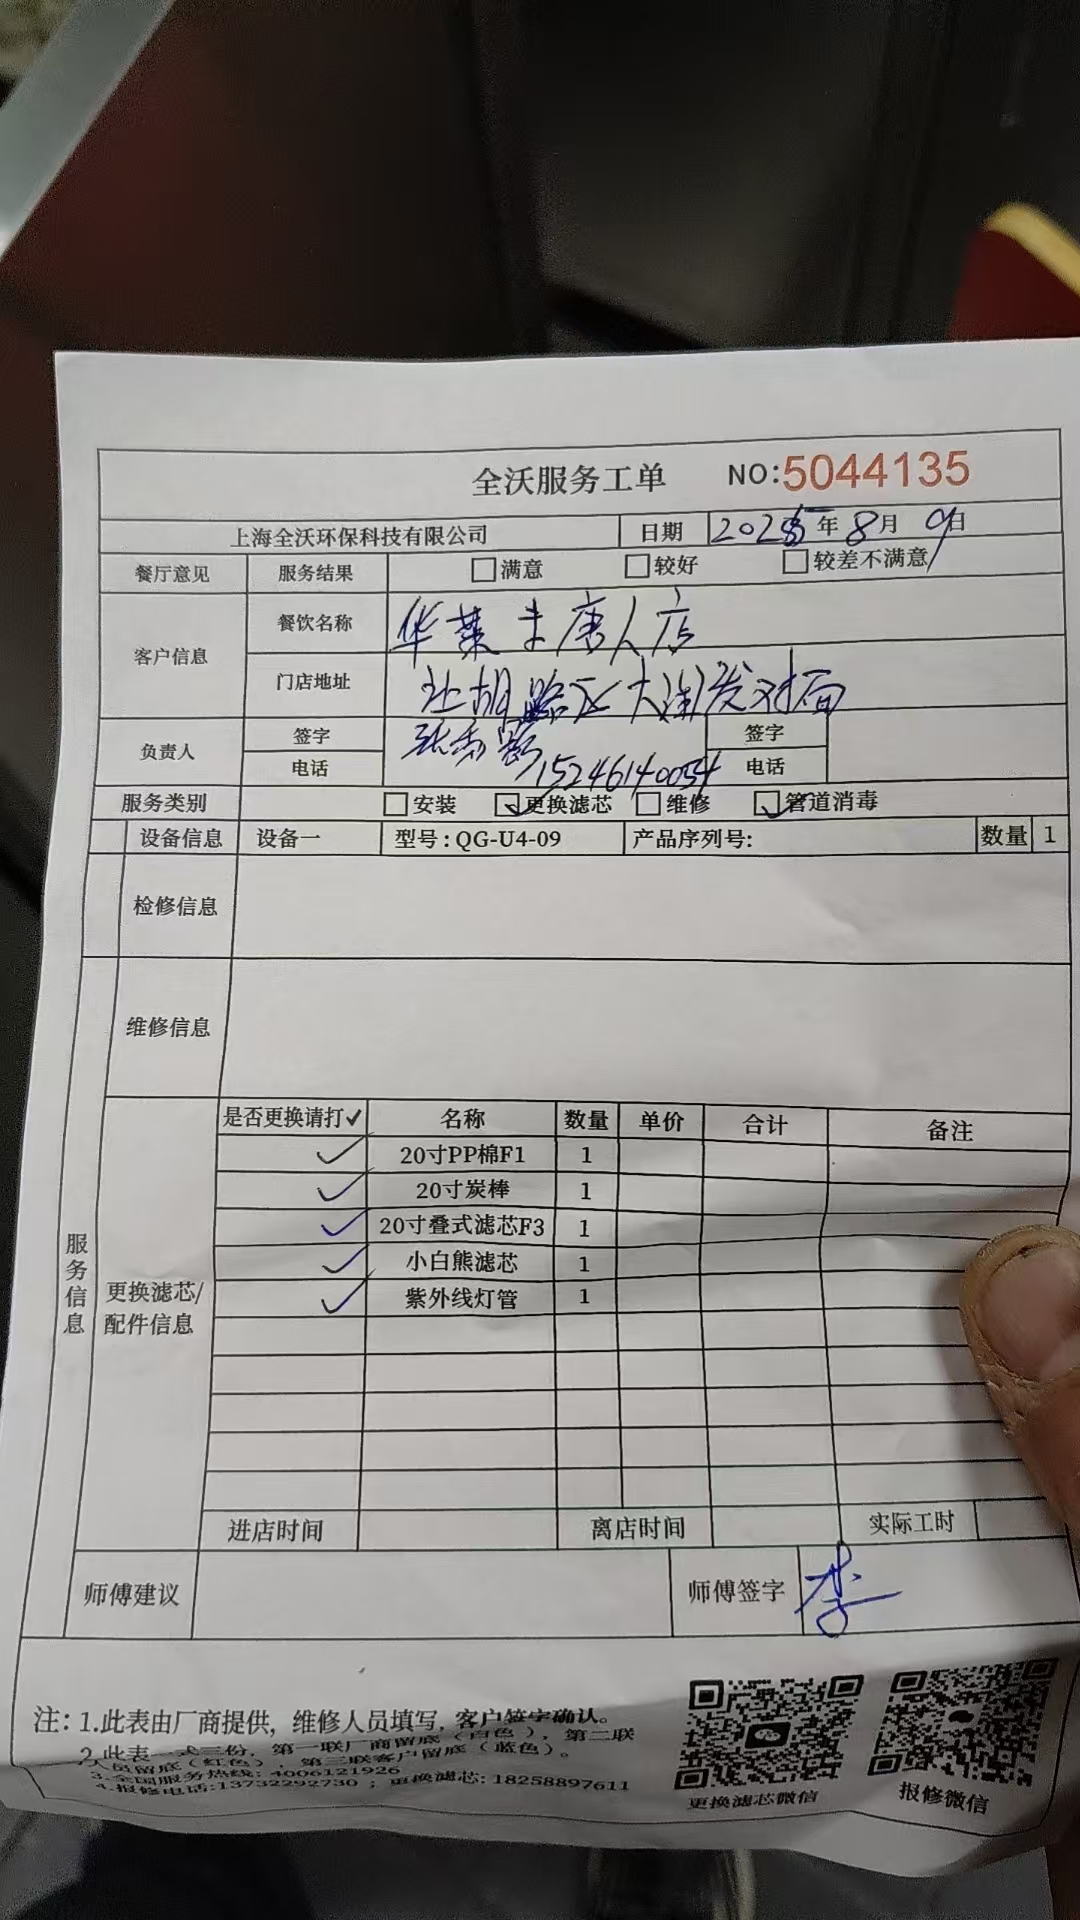 全沃服务工单 NO:5044135
上海全沃环保科技有限公司 日期 2025年8月9日
餐厅意见 服务结果 □满意 □较好 □较差不满意
客户信息 餐饮名称 华莱士唐人店
门店地址 让胡路区大润发对面
负责人 签字 张 签字
电话 15246140054 电话
服务类别 □安装 ☑更换滤芯 □维修 ☑管道消毒
设备信息 设备一 型号:QG-U4-09 产品序列号: 数量 1
检修信息
维修信息
服务信息
更换滤芯/配件信息
是否更换请打✓ 名称 数量 单价 合计 备注
✓ 20寸PP棉F1 1
✓ 20寸炭棒 1
✓ 20寸叠式滤芯F3 1
✓ 小白熊滤芯 1
✓ 紫外线灯管 1
进店时间 离店时间 实际工时
师傅建议 师傅签字 李
注:1.此表由厂商提供,维修人员填写,客户签字确认。
2.此表一式三份,第一联厂商留底(白色),第二联
人员留底(红色),第三联客户留底(蓝色)。
3.全国服务热线:4006121926
4.报修电话:13732292730;更换滤芯:18258897611
更换滤芯微信
报修微信